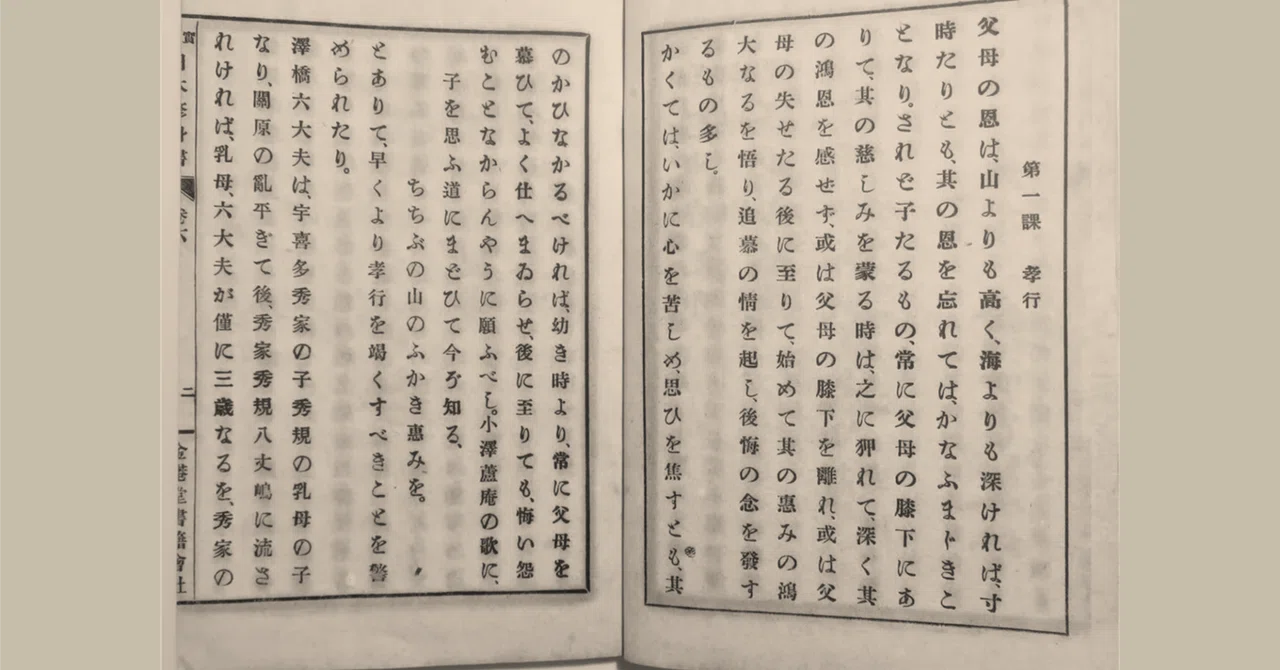 第一課　孝行
父母の恩は、山よりも高く、海よりも深ければ、寸
時たりとも、其の恩を忘れては、かなふまじきこ
となり。されど子たるもの、常に父母の膝下にあ
りて、其の慈しみを蒙る時は、之に狎れて、深く其
の鴻恩を感せず、或は父母の膝下を離れ、或は父
母の失せたる後に至りて、始めて其の惠みの鴻
大なるを悟り、追慕の情を起し、後悔の念を發す
るもの多し。
かくては、いかに心を苦しめ、思ひを焦すとも、其
のかひなかるべければ、幼き時より、常に父母を
慕ひて、よく仕へまゐらせ、後に至りても、悔い怨
むことなからんやうに願ふべし。小澤蘆庵の歌に、
子を思ふ道にまどひて今ぞ知る、
ちちぶの山のふかき惠みを。
とありて、早くより孝行を竭くすべきことを警
められたり。
澤橋六大夫は、宇喜多秀家の子秀規の乳母の子
なり、關原の亂平ぎて後、秀家秀規八丈嶋に流さ
れければ、乳母、六大夫が僅に三歳なるを、秀家の
卷六
二
金港堂書籍會社